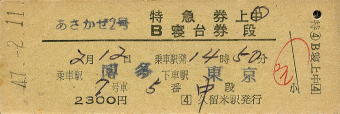 47.-2.11
あさかぜ2号 特急券 上中
B寝台券 段
2月12日 乗車駅発14時50分
乗車駅 博多 下車駅 東京
7号車 5番 中段
2300円 4久留米駅発行
特4B寝上中4